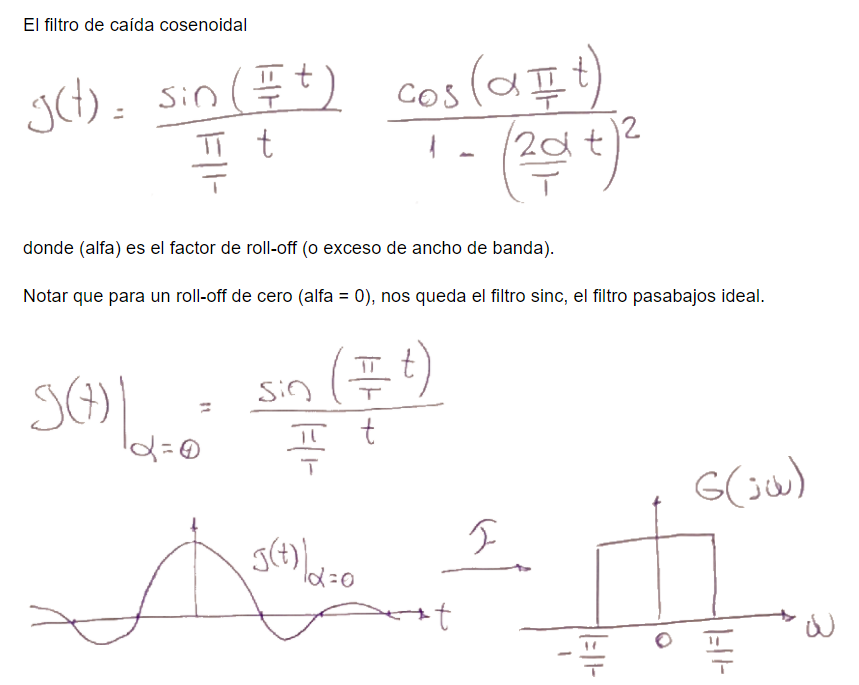 El filtro de caída cosenoidal
g(t) = sin(π/T t) / (π/T t) cos(α π/T t) / (1 - (2α/T t)²)
donde (alfa) es el factor de roll-off (o exceso de ancho de banda).
Notar que para un roll-off de cero (alfa = 0), nos queda el filtro sinc, el filtro pasabajos ideal.
g(t)|α=0 = sin(π/T t) / (π/T t)
G(jω)
g(t)|α=0
F
t
-π/T
0
π/T
ω